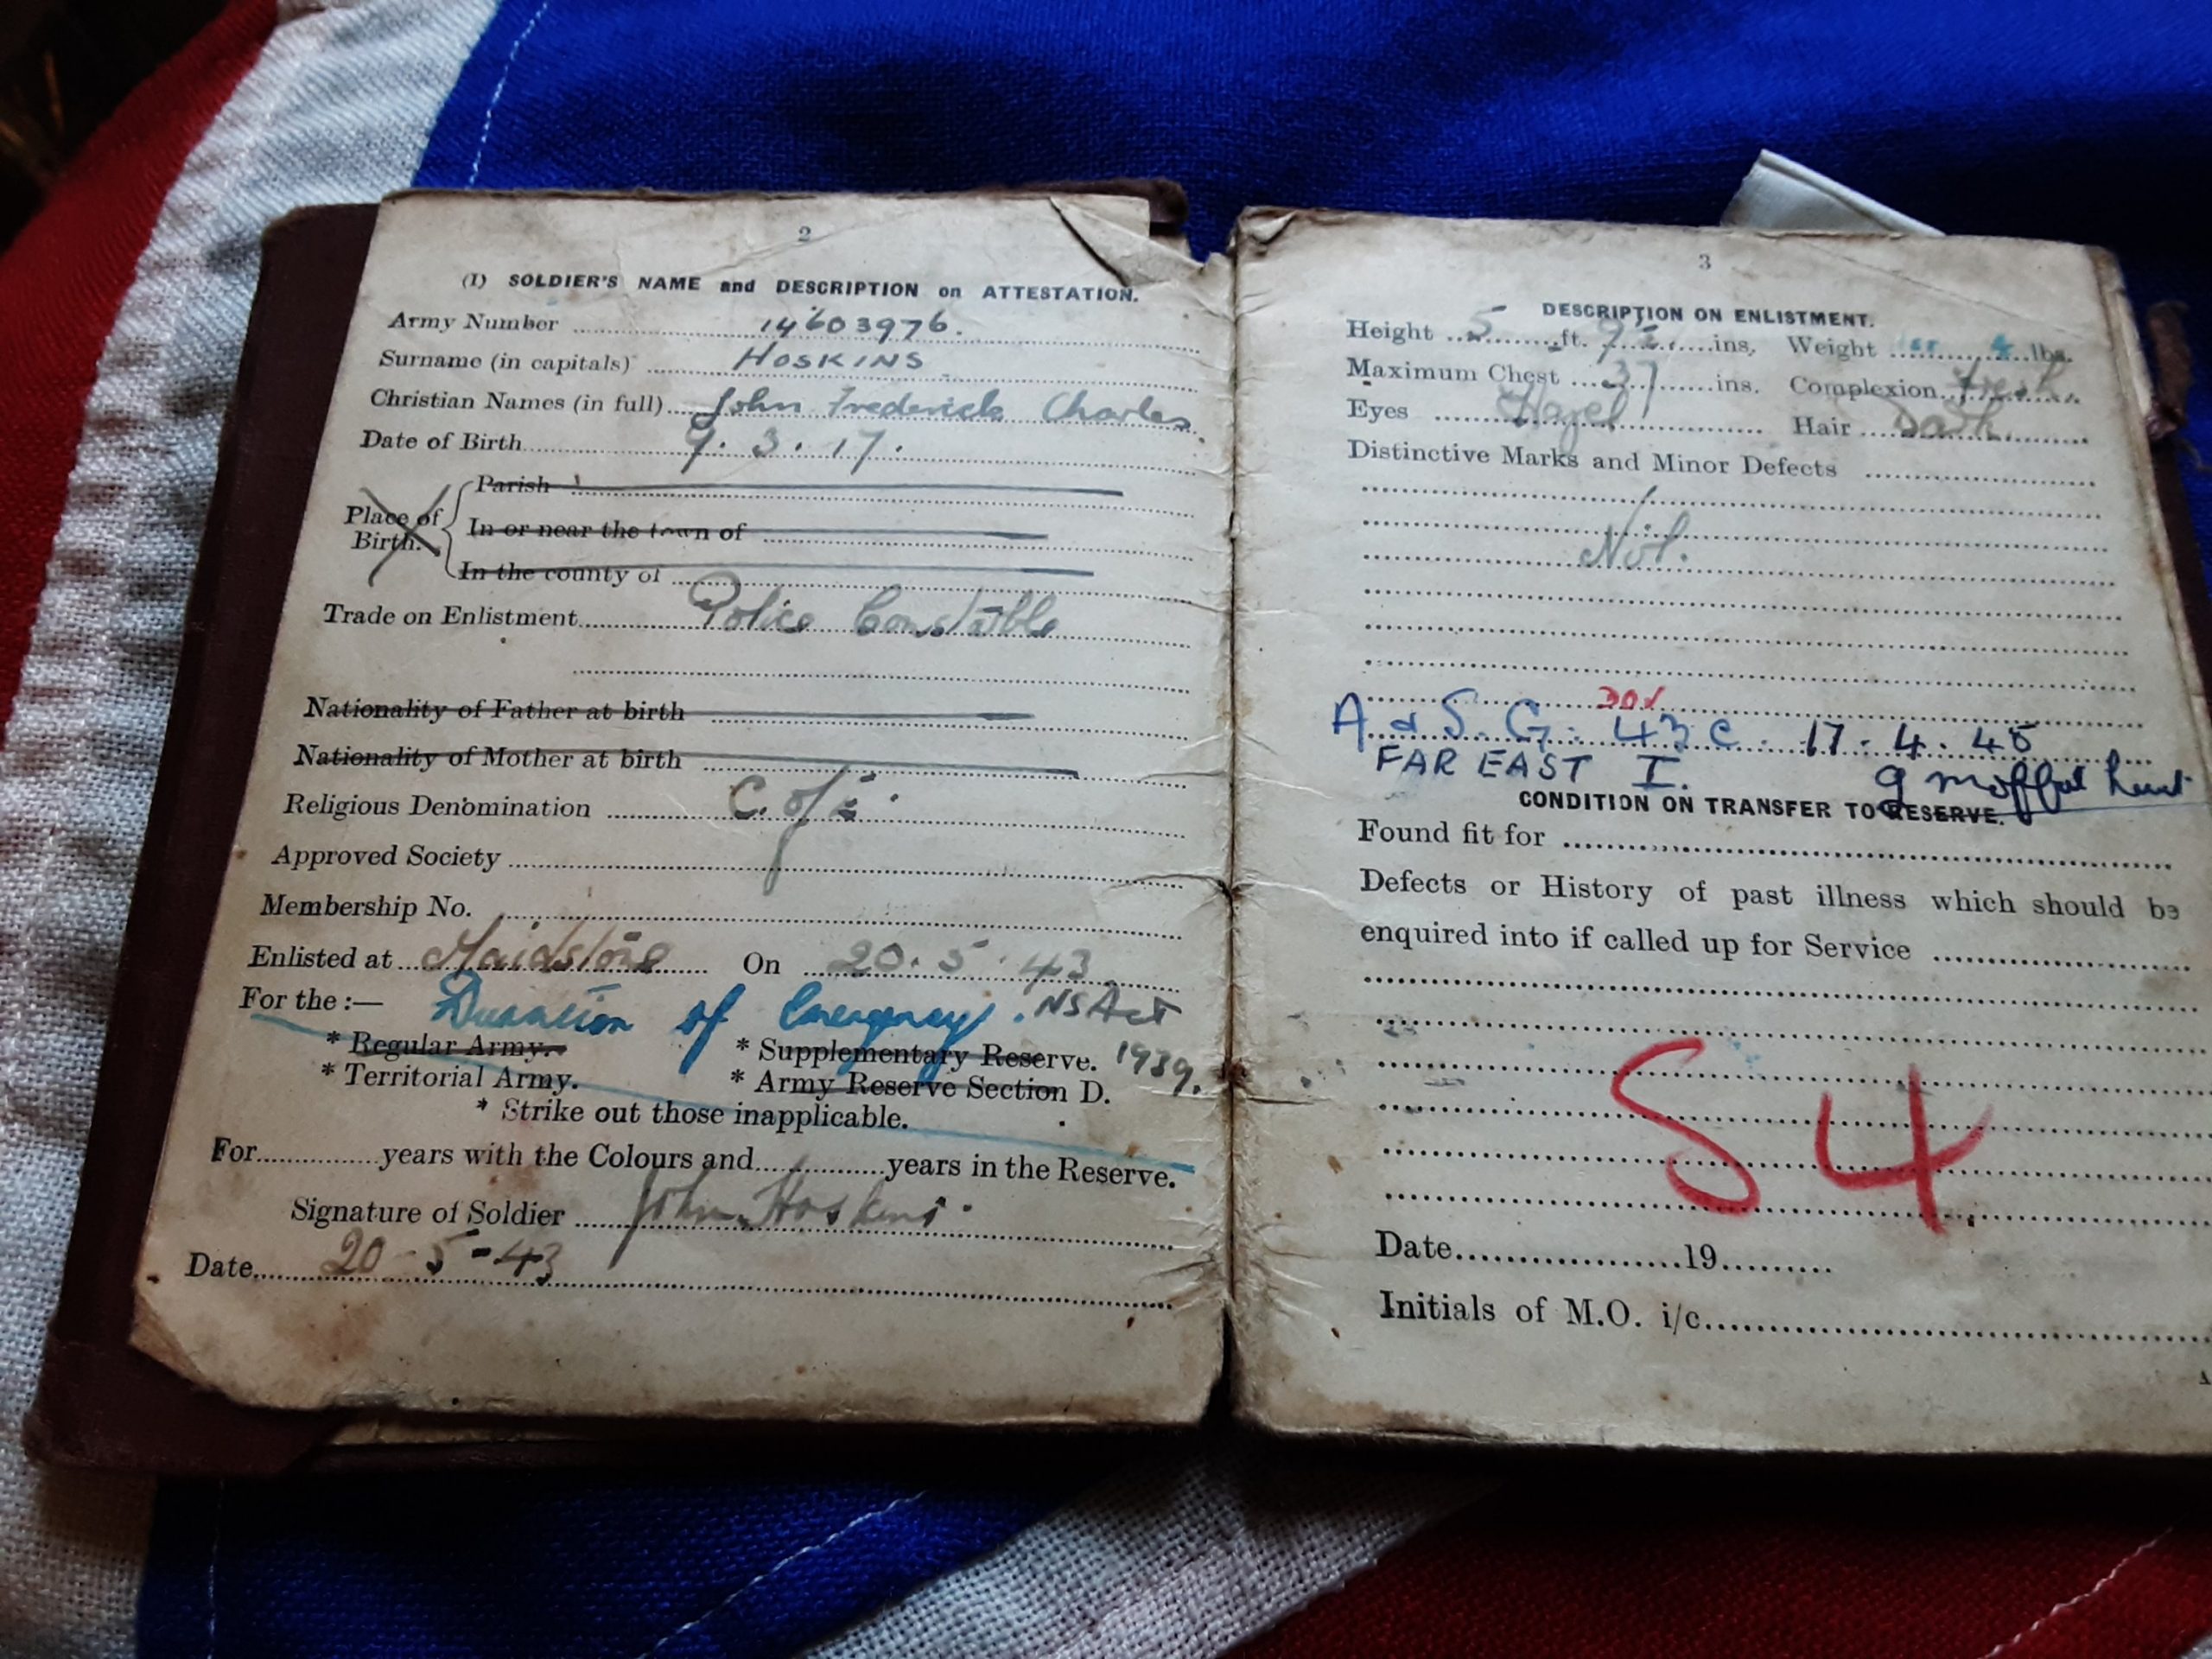 2
(I) SOLDIER'S NAME and DESCRIPTION on ATTESTATION.
Army Number 14603976.
Surname (in capitals) HOSKINS
Christian Names (in full) John Frederick Charles
Date of Birth 9.3.17.
Place of Birth.
Parish
In or near the town of
In the county of
Trade on Enlistment Police Constable
Nationality of Father at birth
Nationality of Mother at birth
Religious Denomination C. of E.
Approved Society
Membership No.
Enlisted at Maidstone On 20.5.43
For the :— Duration of Emergency. NS Act
* Regular Army. * Supplementary Reserve. 1939.
* Territorial Army. * Army Reserve Section D.
* Strike out those inapplicable.
For ........ years with the Colours and ........ years in the Reserve.
Signature of Soldier John Hoskins.
Date 20-5-43
3
DESCRIPTION ON ENLISTMENT.
Height 5 ft. 9½ ins, Weight lbs.
Maximum Chest 37 ins. Complexion Fresh.
Eyes Hazel Hair Dark
Distinctive Marks and Minor Defects
Nil.
A & S. G. 43 c. 17.4.45
FAR EAST I.
CONDITION ON TRANSFER TO RESERVE.
Found fit for
Defects or History of past illness which should be
enquired into if called up for Service
S4
Date 19
Initials of M.O. i/c